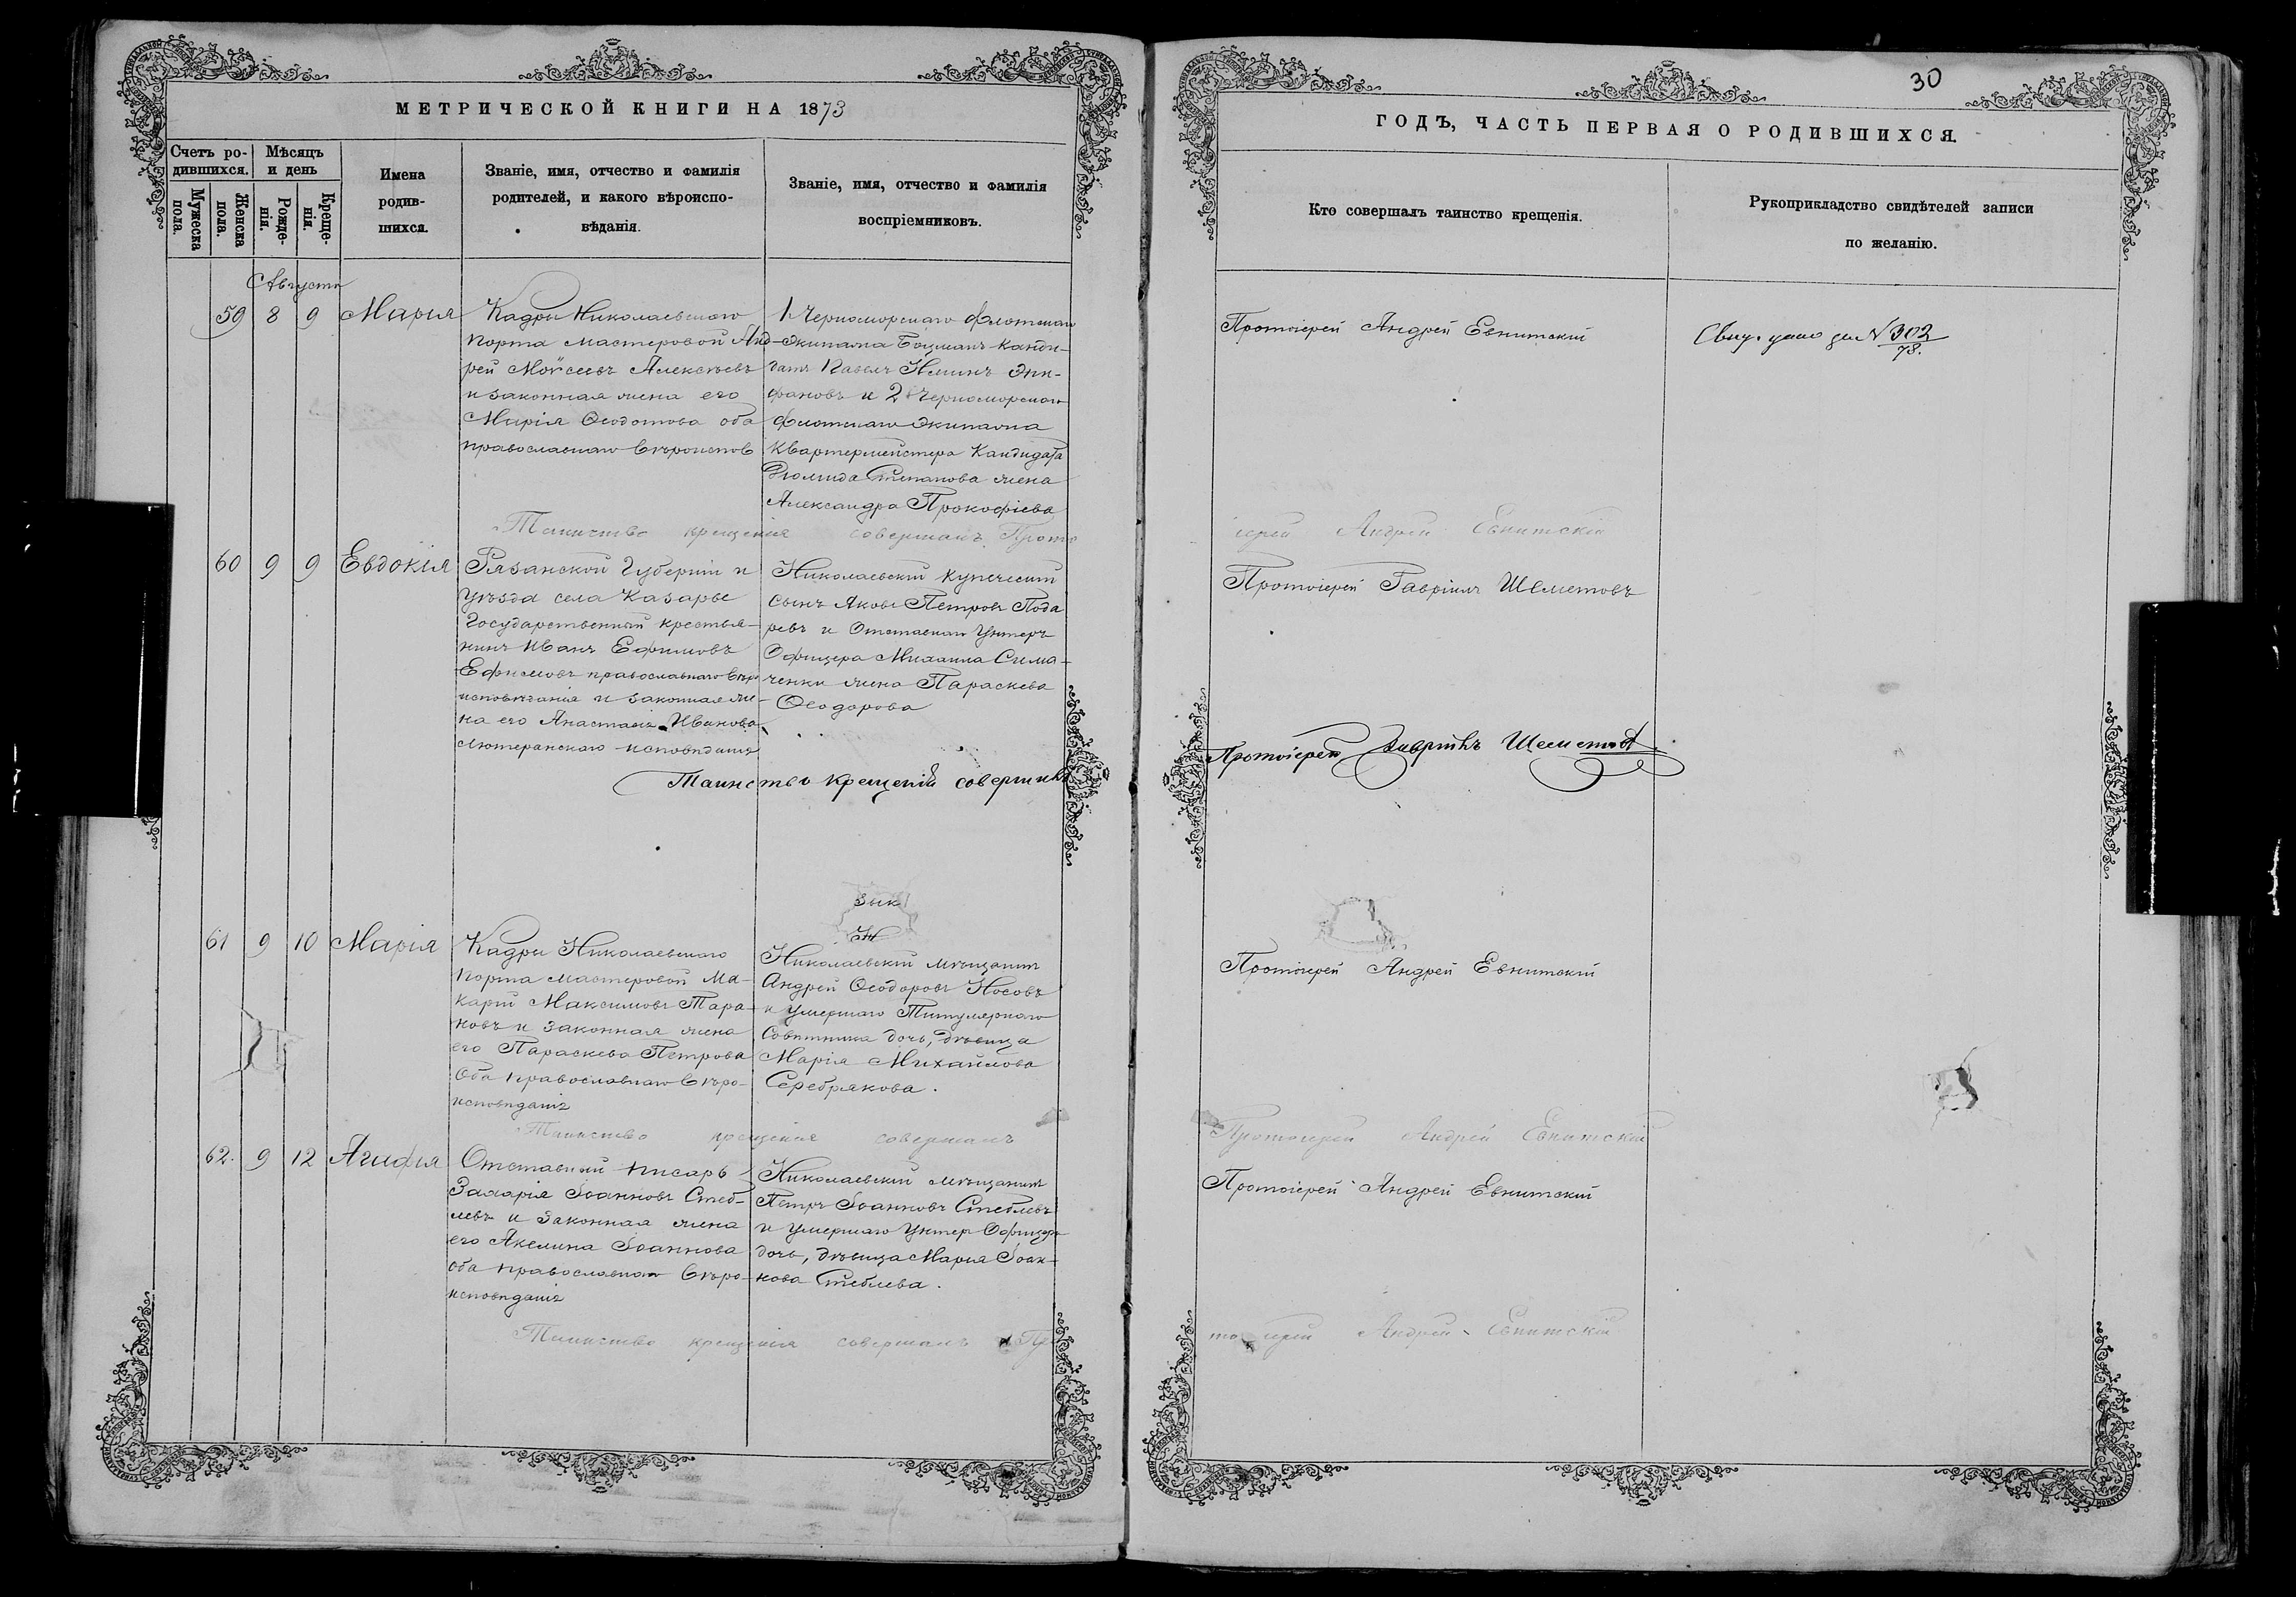 МЕТРИЧЕСКОЙ КНИГИ НА 1873
Счетъ ро-
дившихся.
Мѣсяцъ
и день
Мужеска
пола.
Женска
пола.
Рожде-
нія.
Креще-
нія.
Имена
родив-
шихся.
Званіе, имя, отчество и фамилія
родителей, и какого вѣроиспо-
вѣданія.
Званіе, имя, отчество и фамилія
воспріемниковъ.
Августа
59 8 9 Марія
Кадры Николаевскаго
порта мастеровой Анд-
рей Моѵсеевъ Алексѣевъ
и законная жена его
Марія Ѳеодотова оба
православнаго вѣроисповѣ
1 Черноморскаго флотскаго
Экипажа Боцманъ-Канди-
датъ Павелъ Епи-
фановъ и 2 Черноморскаго
флотскаго Экипажа
Квартермейстера Кандидата
Степанова жена
Александра Прокофіева
Таинство крещенія совершалъ Прото
60 9 9 Евдокія
Рязанской Губерніи и
уѣзда села Казарье
Государственный крестья-
нинъ Иванъ Ефимовъ
Ефимовъ православнаго вѣро
исповѣданія и законная же-
на его Анастасія Иванова
лютеранскаго исповѣданія
Николаевскій купеческій
сынъ Яковъ Петровъ Пода
ревъ и Отставнаго Унтеръ
Офицера Михаила Сима-
ченки жена Параскева
Ѳеодорова
Таинство крещенія совершилъ
зык
Н
61 9 10 Марія
Кадры Николаевскаго
порта мастеровой Ма-
карій Максимовъ Тара-
новъ и законная жена
его Параскева Петрова
Оба православнаго вѣро-
исповѣданія
Николаевскій мѣщанинъ
Андрей Ѳеодоровъ Носовъ
и умершаго Титулярнаго
Совѣтника дочь, дѣвица
Марія Михайлова
Серебрякова.
Таинство крещенія совершалъ
62. 9 12 Агафія
Отставный писарь
Захарія Іоанновъ Стеб-
левъ и законная жена
его Акелина Іоаннова
оба православнаго вѣро-
исповѣданія
Николаевскій мѣщанинъ
Петръ Іоанновъ Стеблевъ
и умершаго Унтеръ Офицера
дочь, дѣвица Марія Іоан-
нова Стеблева.
Таинство крещенія совершалъ Про
30
ГОДЪ, ЧАСТЬ ПЕРВАЯ О РОДИВШИХСЯ.
Кто совершалъ таинство крещенія.
Рукоприкладство свидѣтелей записи
по желанію.
Протоіерей Андрей Евнитскій
Свид. дано за № 302
78.
іерей Андрей Евнитскій
Протоіерей Гавріилъ Шеметовъ
Протоіерей Гавріилъ Шеметовъ
Протоіерей Андрей Евнитскій
Протоіерей Андрей Евнитскій
Протоіерей Андрей Евнитскій
тоіерей Андрей Евнитскій